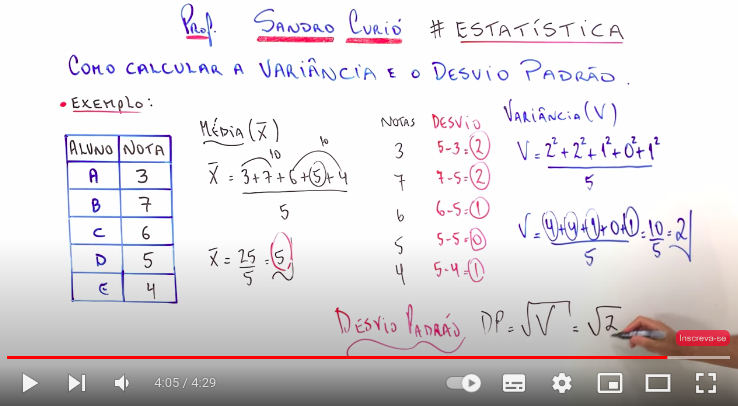 PROF. SANDRO CURIÓ # ESTATÍSTICA
COMO CALCULAR A VARIÂNCIA E O DESVIO PADRÃO.
• EXEMPLO:
ALUNO NOTA
A 3
B 7
C 6
D 5
E 4
MÉDIA (X̄)
10 10
X̄ = 3+7+6+5+4
5
X̄ = 25/5 = 5
NOTAS DESVIO
3 5-3=2
7 7-5=2
6 6-5=1
5 5-5=0
4 5-4=1
VARIÂNCIA (V)
V = 2²+2²+1²+0²+1²
5
V = 4+4+1+0+1 = 10/5 = 2
5
DESVIO PADRÃO DP = √V = √2
Inscreva-se
4:05 / 4:29